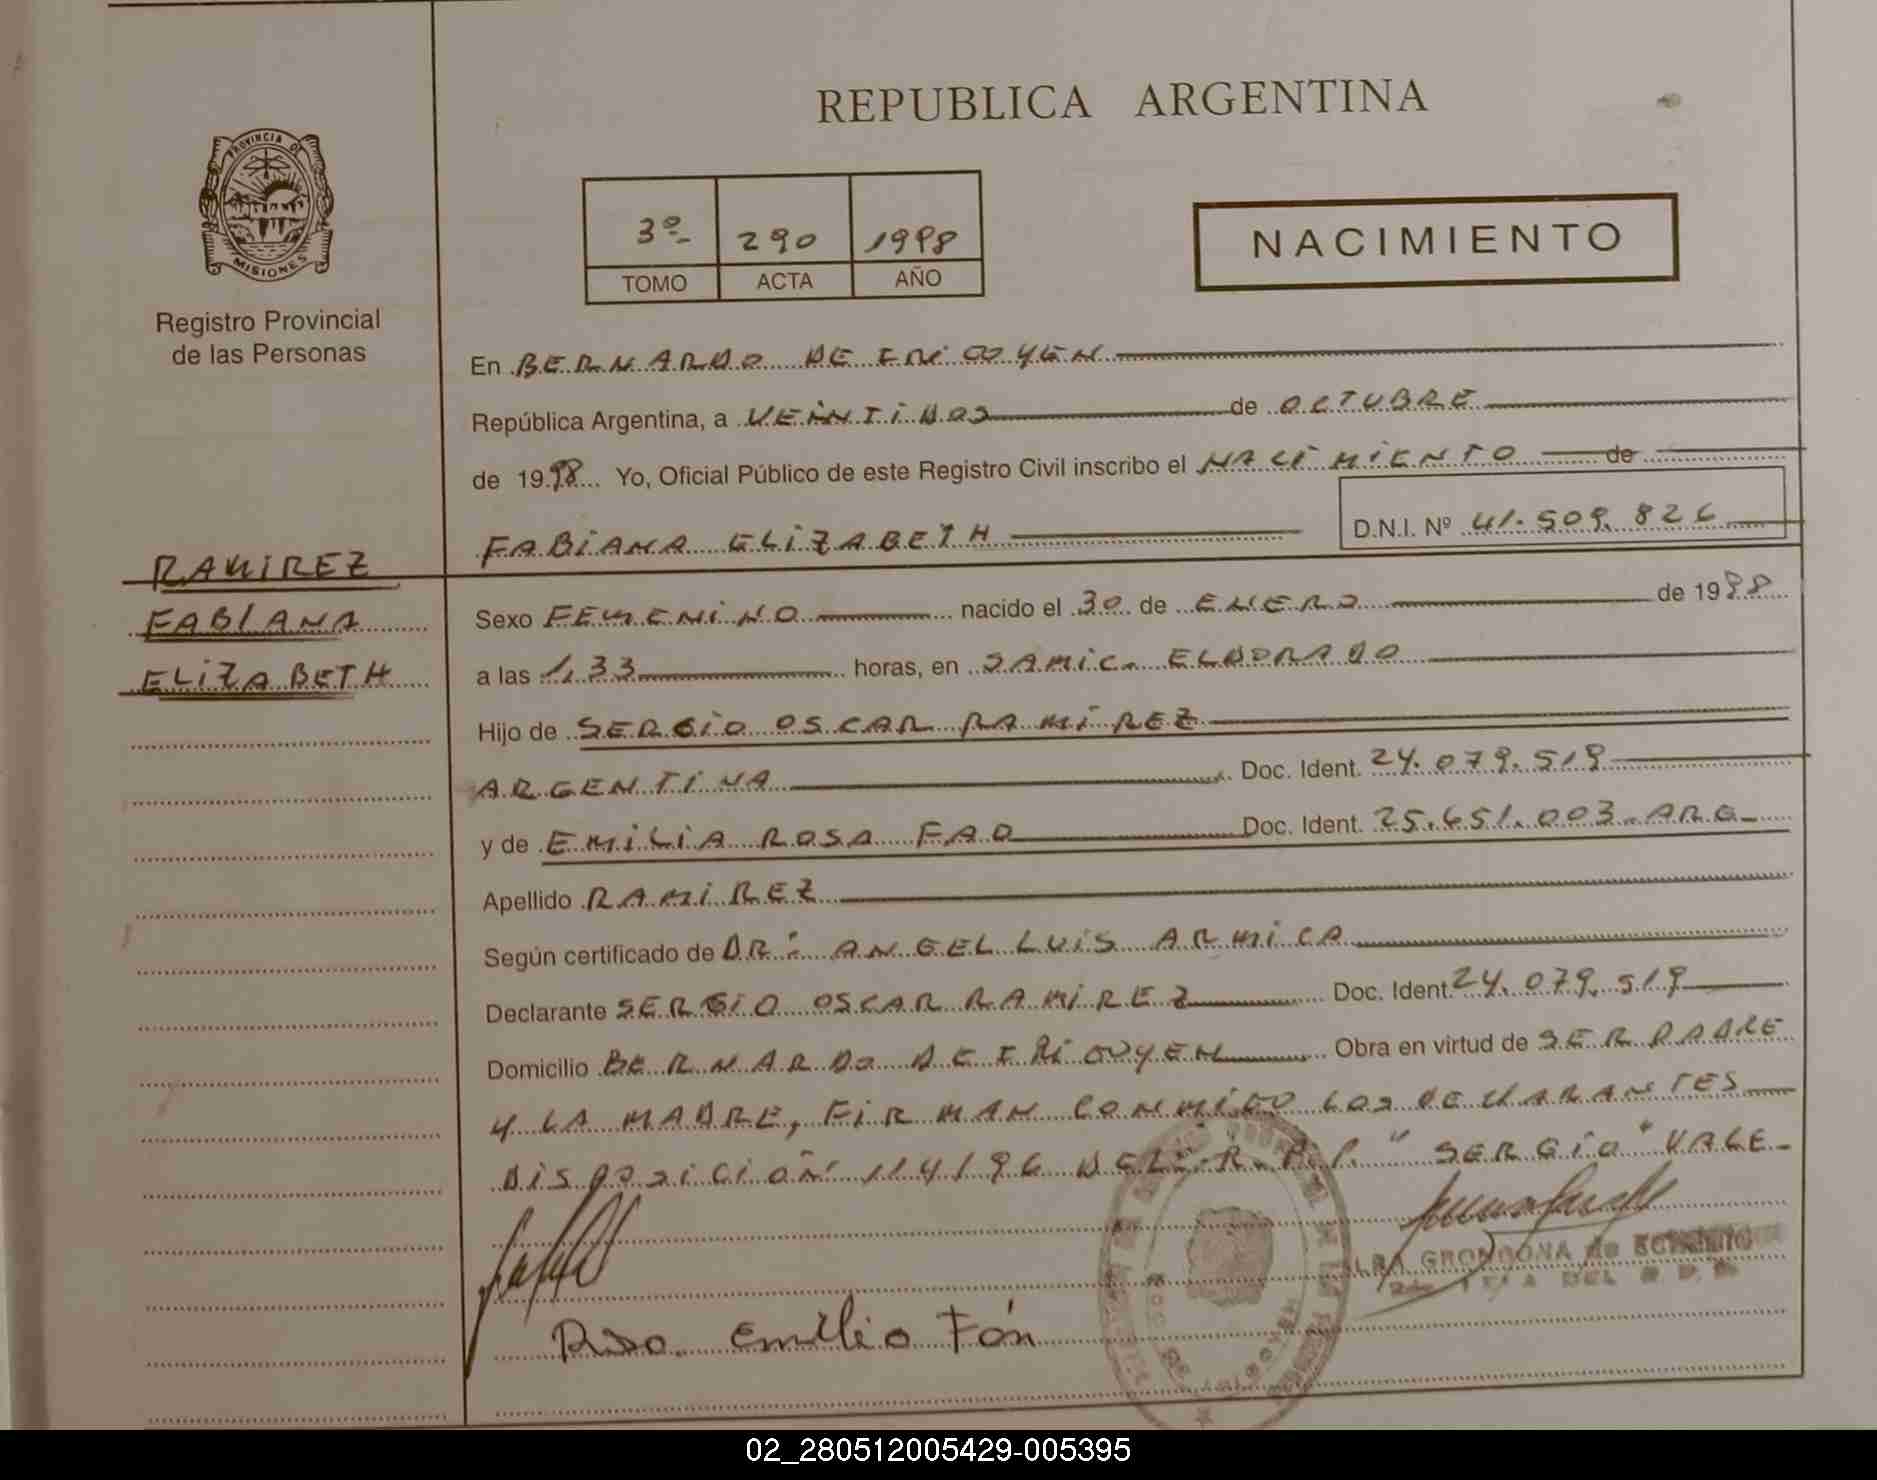 REPUBLICA ARGENTINA
PROVINCIA DE
MISIONES
Registro Provincial
de las Personas
3º 290 1998
TOMO ACTA AÑO
NACIMIENTO
En BERNARDO DE IRIGOYEN
República Argentina, a VEINTIDOS de OCTUBRE
de 1998 Yo, Oficial Público de este Registro Civil inscribo el NACIMIENTO de
FABIANA ELIZABETH D.N.I. Nº 41.509.826
RAMIREZ
FABIANA
ELIZABETH
Sexo FEMENINO nacido el 30 de ENERO de 1998
a las 1,33 horas, en SAMIC. ELDORADO
Hijo de SERGIO OSCAR RAMIREZ
ARGENTINA Doc. Ident. 24.079.519
y de EMILIA ROSA FAO Doc. Ident. 25.651.003-ARG-
Apellido RAMIREZ
Según certificado de DR: ANGEL LUIS ARMICA
Declarante SERGIO OSCAR RAMIREZ Doc. Ident. 24.079.519
Domicilio BERNARDO DE IRIGOYEN Obra en virtud de SER PADRE
Y LA MADRE, FIRMAN CONMIGO LOS DECLARANTES
DISPOSICION 114/96 DEL R.P.P. "SERGIO" VALE-
GRONDONA de
DEL
02_280512005429-005395